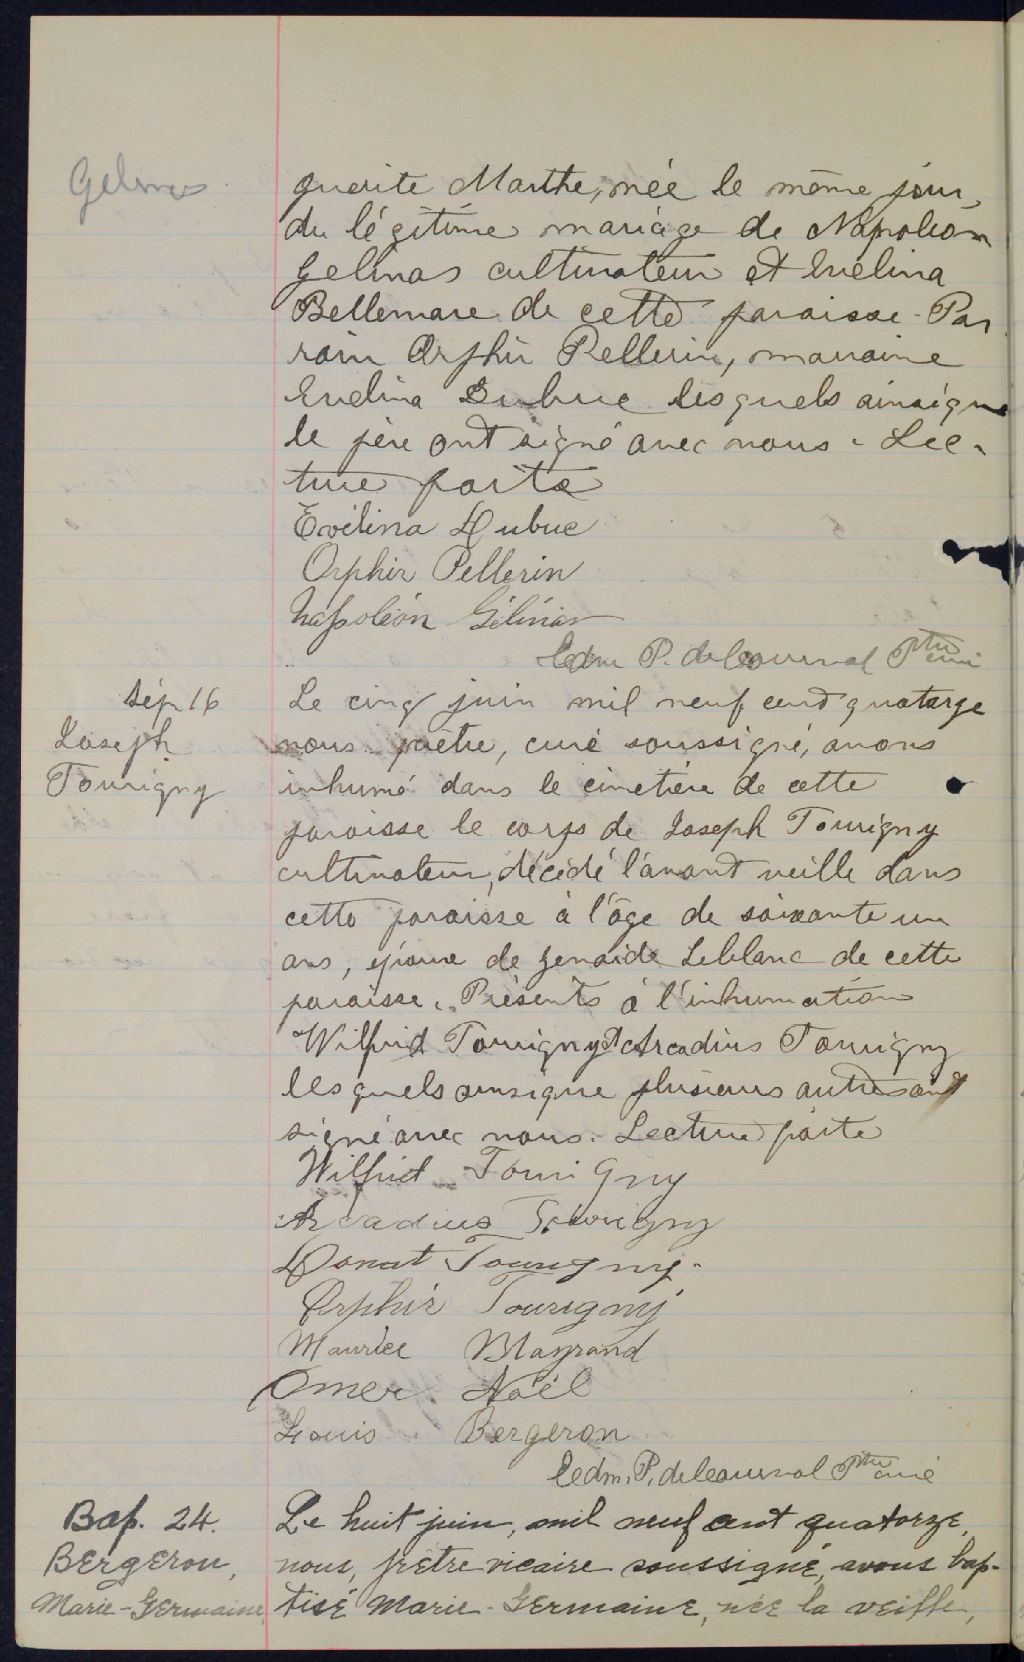 Gelinas
guerite Marthe, née le même jour,
du légitime mariage de Napoléon
Gelinas cultivateur et Evélina
Bellemare de cette paroisse - Par
rain Orphir Pellerin, marraine
Evelina Dubuc lesquels ainsique
le père ont signé avec nous - Lec-
ture faite
Evélina Dubuc
Orphir Pellerin
Napoléon Gélinas
Edm. P. de Courval Ptre curé
Sép 16
Joseph
Tourigny
Le cinq juin mil neuf cent quatorze
nous prêtre, curé soussigné, avons
inhumé dans le cimetière de cette
paroisse le corps de Joseph Tourigny
cultivateur, décédé l'avant veille dans
cette paroisse à l'âge de soixante un
ans, époux de Zenaide Leblanc de cette
paroisse. Présents à l'inhumation
Wilfrid Tourigny et Arcadius Tourigny
lesquels ainsique plusieurs autres ont
signé avec nous. Lecture faite
Wilfrid Tourigny
Arcadius Tourigny
Donat Tourigny.
Orphir Tourigny
Maurice Mayrand
Omer Noël
Louis Bergeron
Edm. P. de Courval Ptre curé
Bap. 24.
Bergeron,
Marie-Germaine,
Le huit juin, mil neuf cent quatorze,
nous, prêtre vicaire soussigné, avons bap-
tisé Marie-Germaine, née la veille,